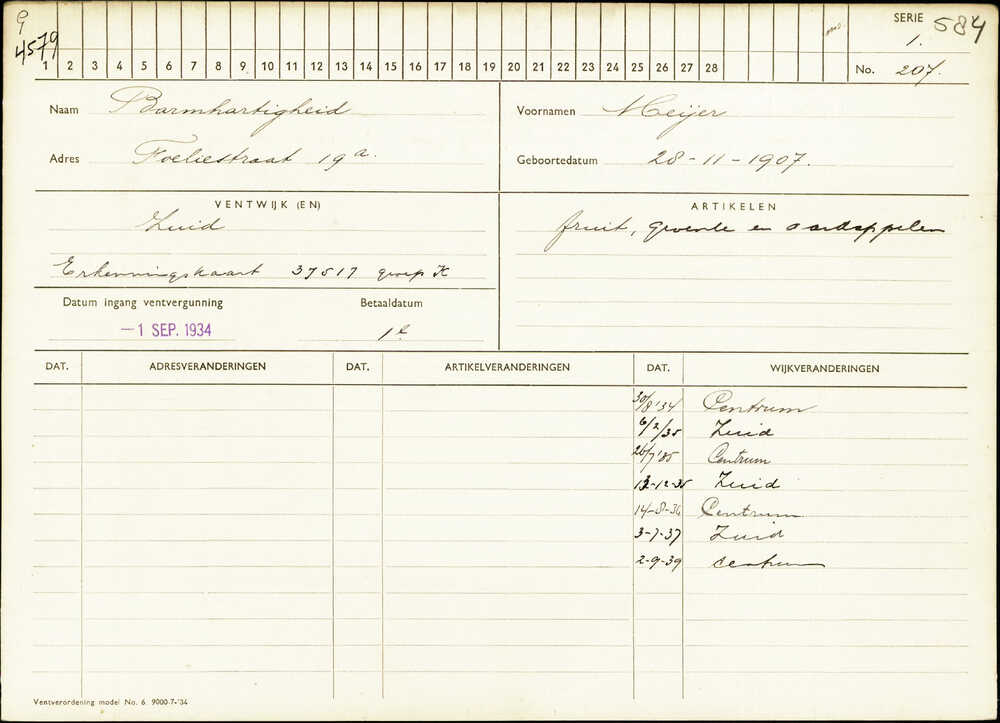 9
4579
SERIE 584
1.
1 2 3 4 5 6 7 8 9 10 11 12 13 14 15 16 17 18 19 20 21 22 23 24 25 26 27 28
No. 207.
Naam Barmhartigheid
Voornamen Meijer
Adres Foeliestraat 19a.
Geboortedatum 28-11-1907.
VENTWIJK (EN)
Zuid
Erkenningskaart 37517 groep K
ARTIKELEN
fruit, groente en aardappelen
Datum ingang ventvergunning
Betaaldatum
-1 SEP. 1934
1e
DAT. ADRESVERANDERINGEN DAT. ARTIKELVERANDERINGEN DAT. WIJKVERANDERINGEN
30/8'34 Centrum
6/2/35 Zuid
26/7'35 Centrum
13-12-35 Zuid
14-8-36 Centrum
3-7-37 Zuid
2-9-39 Centrum
Ventverordening model No. 6 9000-7-'34